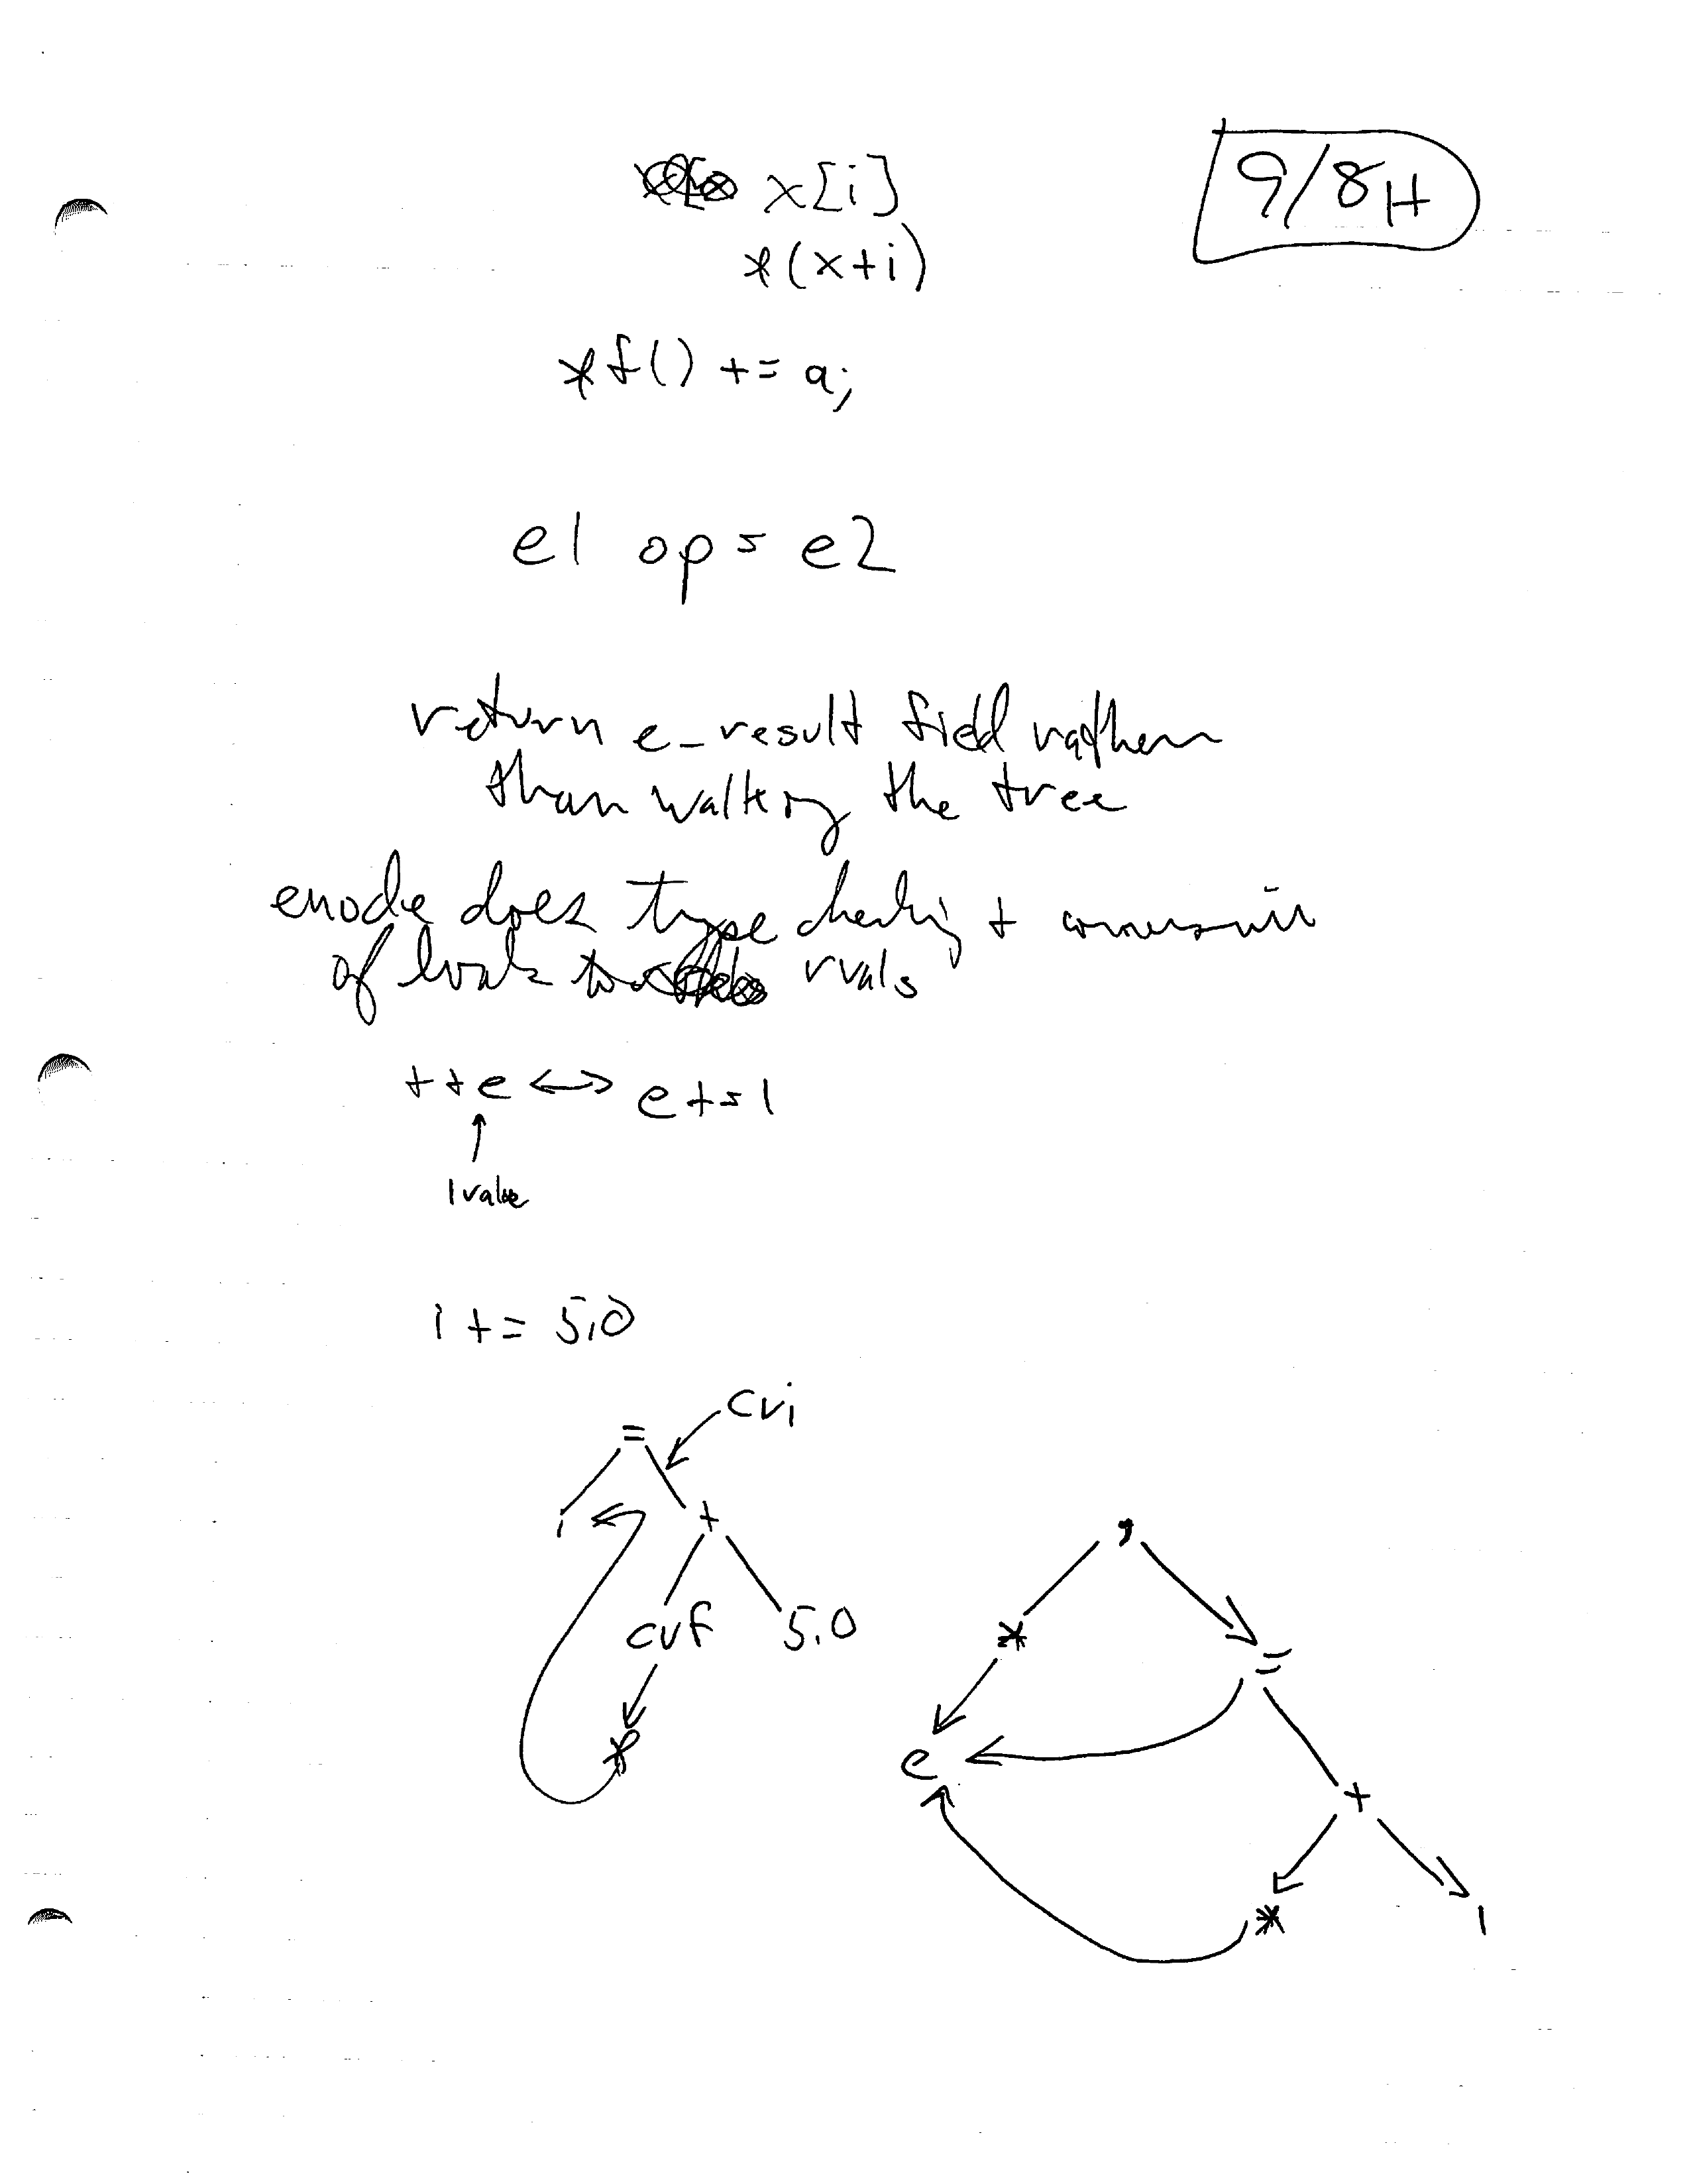 x[i]
9/8H
*(x+i)
*f() += a;
e1 op= e2
return e_result field rather
than walking the tree
enode does type checking + conversion
of lvals to rvals
++e ↔ e+=1
↑
lvalue
i += 5.0
cvi
=
i +
,
cvf 5.0
*
=
*
e
+
* 1